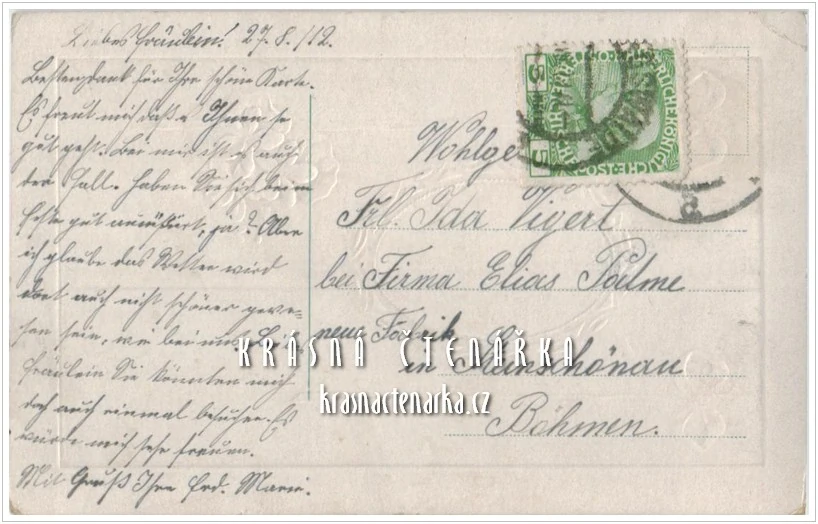 Liebes Fräulein! 27.8./12.
Bestendank für Ihre schöne Karte.
Es freut mich daß s Ihnen so
gut geht. Bei mir ist es auch
der Fall. Haben Sie sich beim
Feste gut amüsiert, ja? Aber
ich glaube das Wetter wird
dort auch nicht schöner gewe-
sen sein, wie bei uns.
Fräulein Sie könnten mich
doch auch einmal besuchen. Es
würde mich sehr freuen.
Mit Gruß Ihre Marie.
5
5
Wohlge
Frl. Ida Vigert
bei Firma Elias Palme
neue Fabrik
in Steinschönau
Böhmen.
KRÁSNÁ ČTENÁŘKA
krasnactenarka.cz